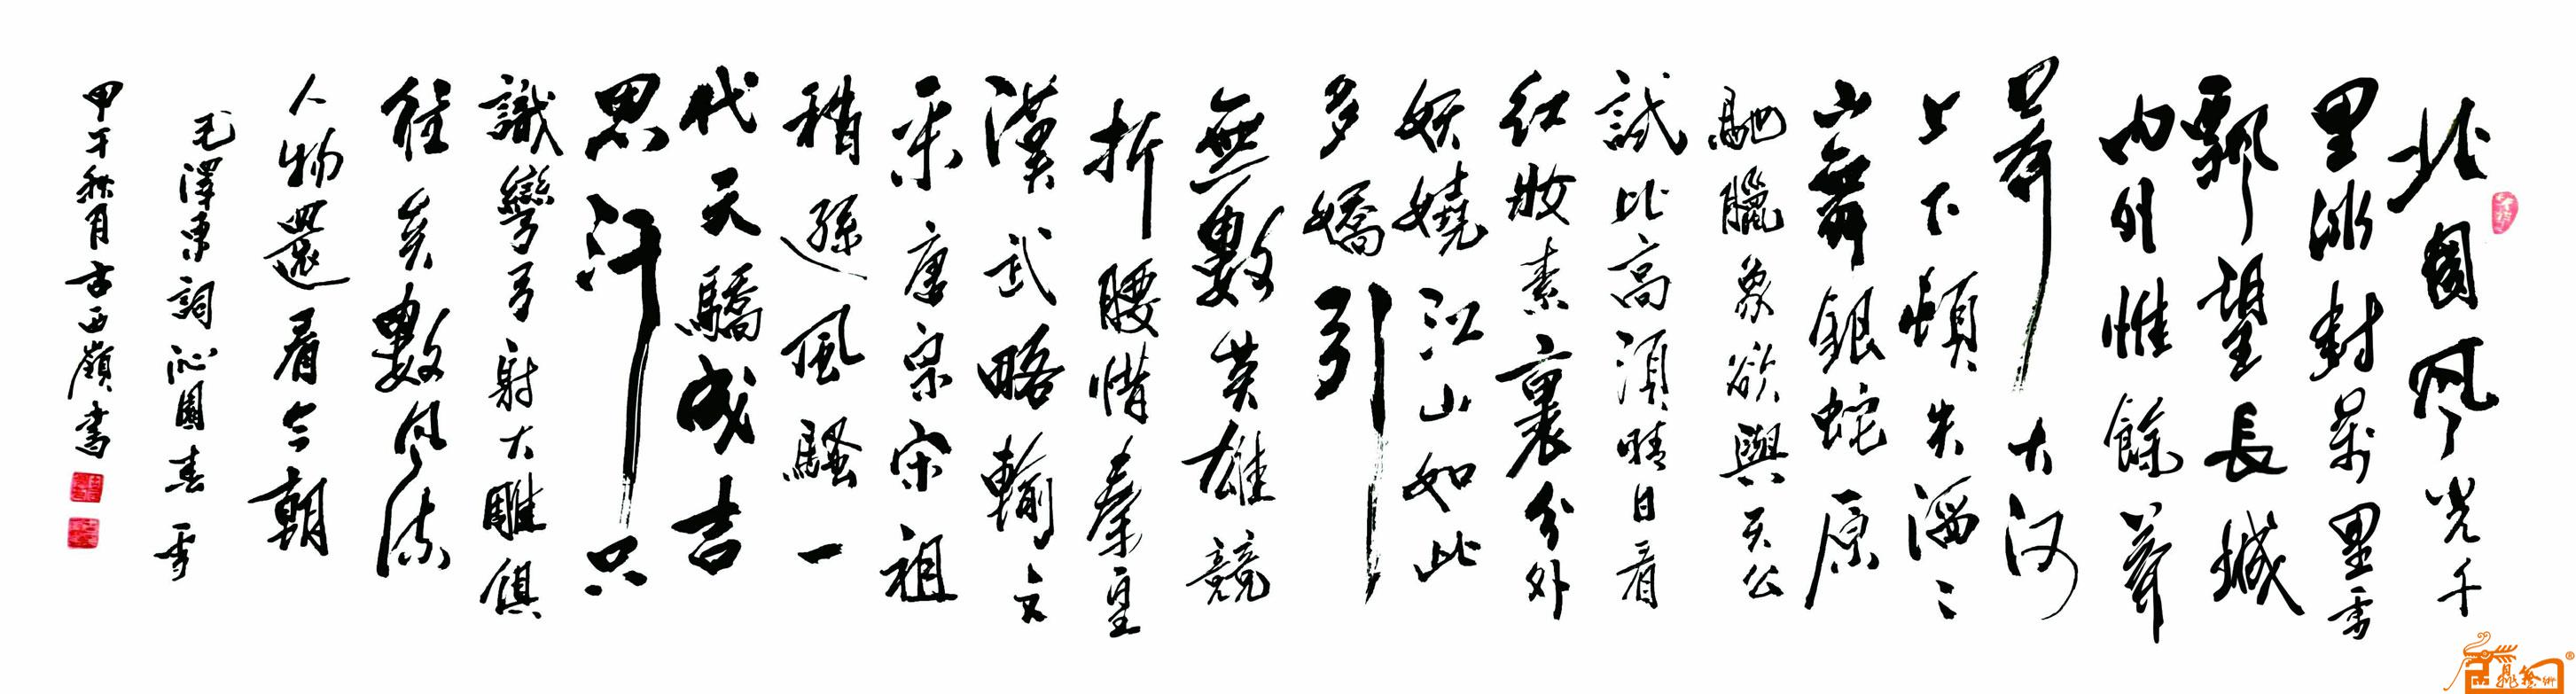 北國風光千
里冰封萬里雪
飄望長城
内外惟餘莽
莽大河
上下頓失滔〻
山舞銀蛇原
馳臘象欲與天公
試比高須晴日看
紅妝素裹分外
妖嬈江山如此
多嬌引
無數英雄競
折腰惜秦皇
漢武略輸文
采唐宗宋祖
稍遜風騷一
代天驕成吉
思汗只
識彎弓射大雕俱
往矣數風流
人物還看今朝
毛澤東詞沁園春雪
甲午秋月古西嶺書